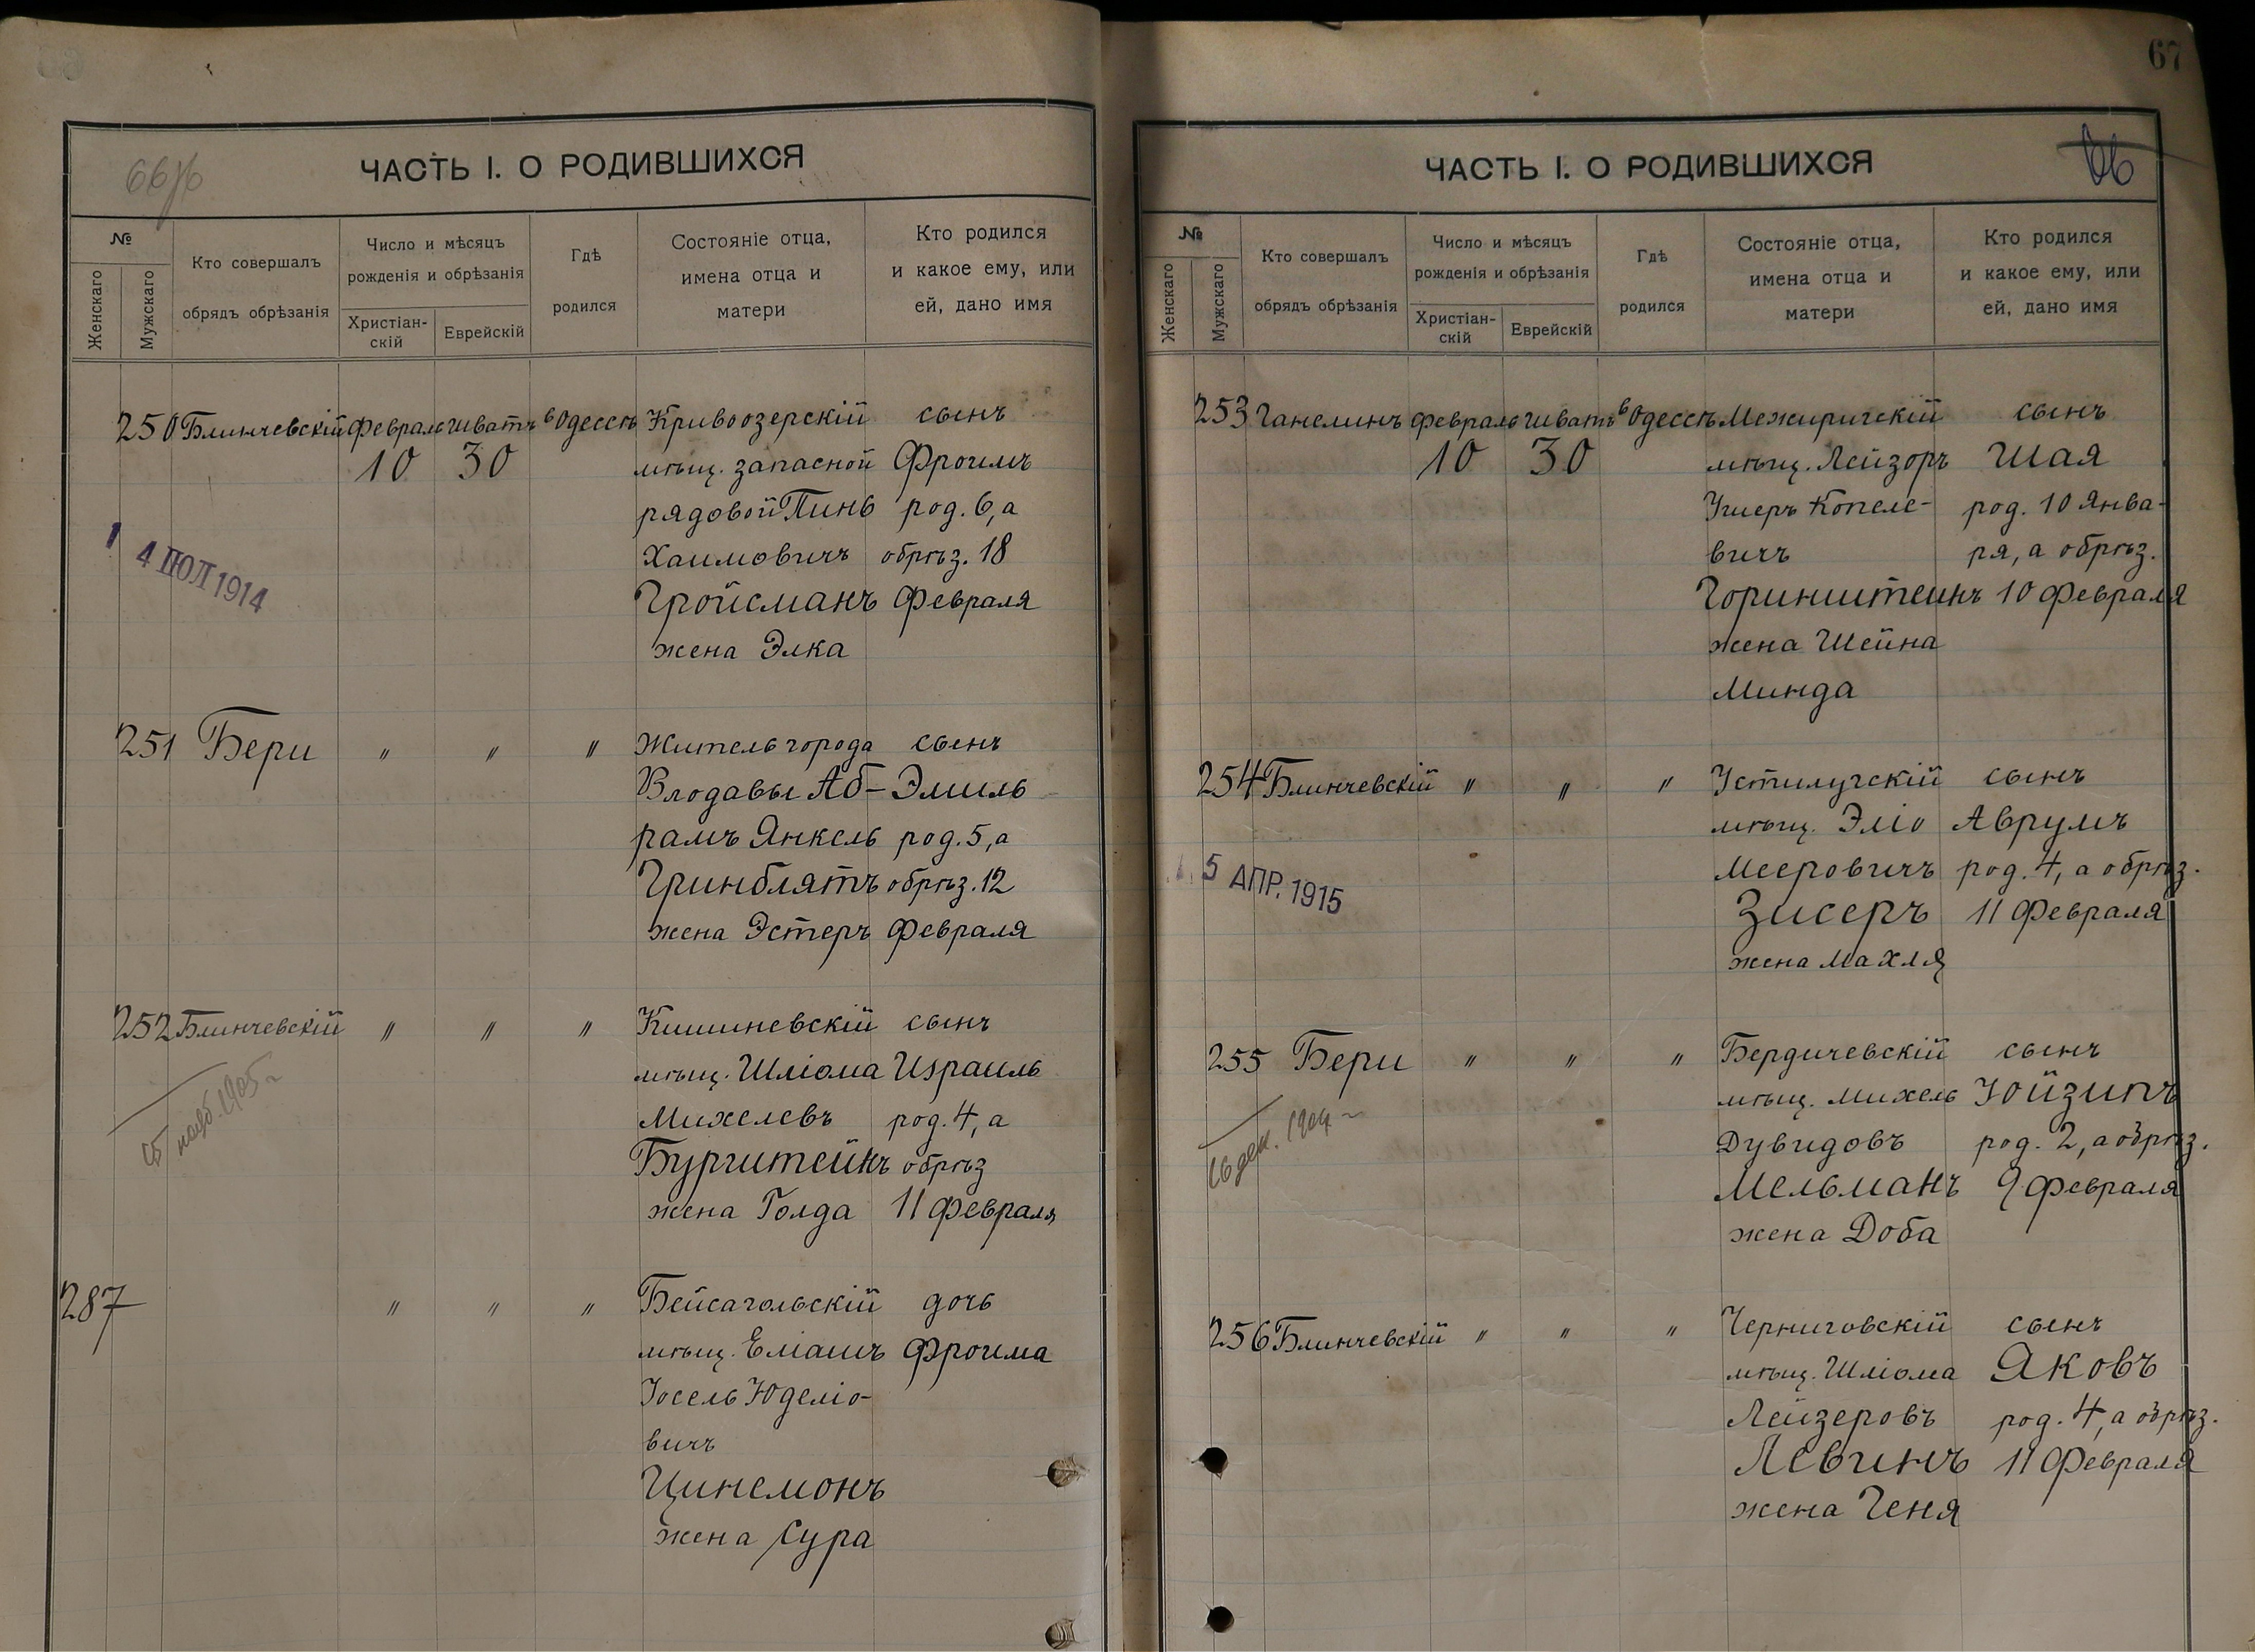 67
66
ЧАСТЬ I. О РОДИВШИХСЯ
№
Женскаго
Мужскаго
Кто совершалъ
обрядъ обрѣзанія
Число и мѣсяцъ
рожденія и обрѣзанія
Христіан-
скій
Еврейскій
Гдѣ
родился
Состояніе отца,
имена отца и
матери
Кто родился
и какое ему, или
ей, дано имя
250 Блинчевскій Февраль Шватъ в Одессѣ Кривоозерскій сынъ
10 30 мѣщ. запасной Фроимъ
рядовой Пинь род. 6, а
Хаимовичъ обрѣз. 18
Гройсманъ Февраля
жена Элка
14 ІЮЛ 1914
251 Бери " " " Житель города сынъ
Влодавы Аб- Эмиль
рамъ Янкель род. 5, а
Гринблятъ обрѣз. 12
жена Эстеръ Февраля
252 Блинчевскій " " " Кишиневскій сынъ
мѣщ. Шліома Израиль
Михелевъ род. 4, а
Бурштейнъ обрѣз
жена Голда 11 Февраля
нояб. 1905 г
287 " " " Бейсагольскій дочь
мѣщ. Еліашъ Фроима
Іосель Юделіо-
вичъ
Цинемонъ
жена Сура
ЧАСТЬ I. О РОДИВШИХСЯ
66
№
Женскаго
Мужскаго
Кто совершалъ
обрядъ обрѣзанія
Число и мѣсяцъ
рожденія и обрѣзанія
Христіан-
скій
Еврейскій
Гдѣ
родился
Состояніе отца,
имена отца и
матери
Кто родился
и какое ему, или
ей, дано имя
253 Ганелинъ Февраль Шватъ в Одессѣ Межиричскій сынъ
10 30 мѣщ. Лейзоръ Шая
Ушеръ Копеле- род. 10 Янва-
вичъ ря, а обрѣз.
Горинштейнъ 10 Февраля
жена Шейна
Минда
254 Блинчевскій " " " Устилугскій сынъ
мѣщ. Эліо Аврумъ
Мееровичъ род. 4, а обрѣз.
Зисеръ 11 Февраля
жена Махля
5 АПР. 1915
255 Бери " " " Бердичевскій сынъ
мѣщ. Михель Іойзипъ
Дувидовъ род. 2, а обрѣз.
Мельманъ 9 Февраля
жена Доба
16 дек. 1904 г
256 Блинчевскій " " " Черниговскій сынъ
мѣщ. Шліома Яковъ
Лейзеровъ род. 4, а обрѣз.
Левинъ 11 Февраля
жена Геня